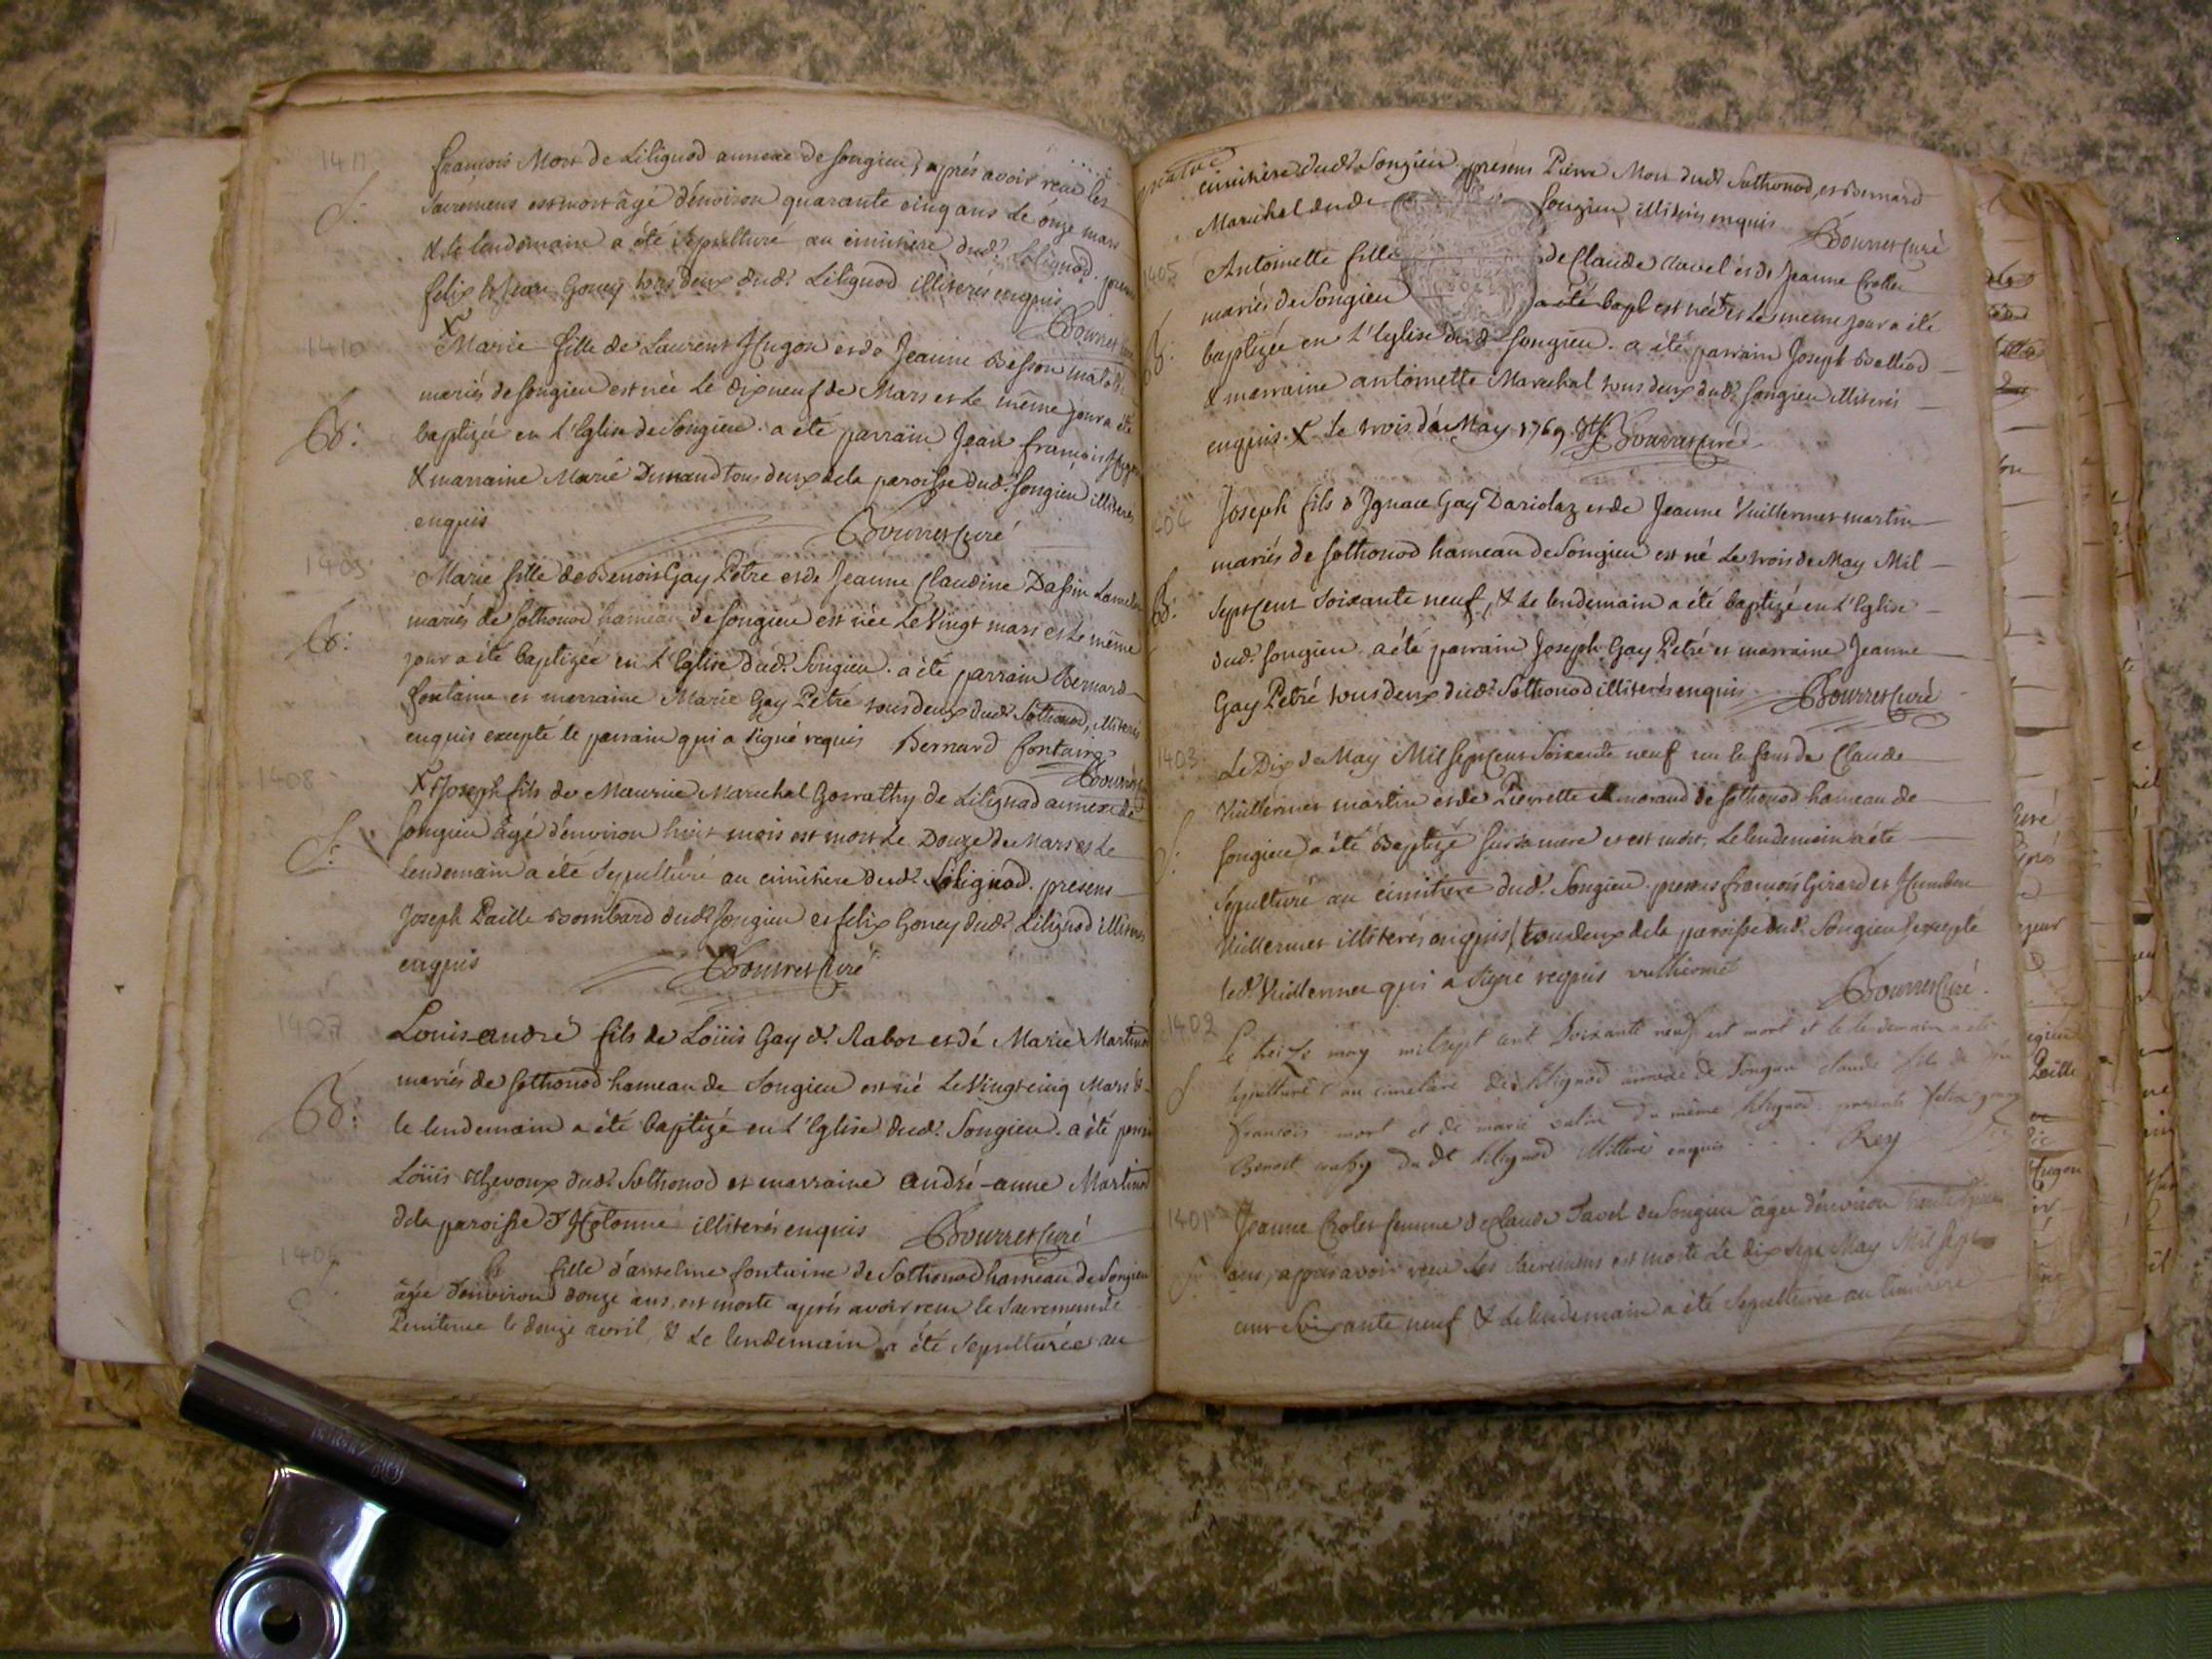 1411
françois Mort de Lilignod annexe de songieu, après avoir reçu les
S:
sacremens est mort âgé d'environ quarante cinq ans le onze mars
& le lendemain a été sepulturé au cimitiere dud: Lilignod.
felix & Jean Goney tous deux dud: Lilignod illiterés enquis
Bourret
1410
Marie fille de Laurent Hugon et de Jeanne Besson
mariés de songieu est née le dixneuf de Mars et le même jour a été
B:
baptizée en l'Eglise de Songieu. a été parrain Jean françois
& marraine Marie Dumand tous deux de la paroisse dud: songieu illiterés
enquis
Bourret Curé
1409
Marie fille de Benoit Gay Petre et de Jeanne Claudine Dassin
mariés de sothonod hameau de songieu est née le Vingt mars et le même
B:
jour a été baptizée en l'Eglise dud: Songieu. a été parrain Bernard
fontaine et marraine Marie Gay Petre tous deux dud: Sothonod, illiterés
enquis excepté le parrain qui a signé requis Bernard fontaine
Bourret
1408
Joseph fils de Maurice Marechal Gorrathy de Lilignod annexe de
songieu âgé d'environ huit mois est mort le Douze de Mars et le
S:
lendemain a été sepulturé au cimitiere dud: Lilignod. presens
Joseph Paille Bombard dud: songieu et felix Goney dud: Lilignod illiterés
enquis
Bourret Curé
1407
Louis andré fils de Loüis Gay d: Rabot et dé Marie Martinod
mariés de sothonod hameau de Songieu est né le Vingt cinq Mars &
B:
le lendemain a été baptizé en l'Eglise dud: Songieu. a été
Loüis Thevoux dud: Sothonod et marraine André-anne Martinod
de la paroisse d'Hotonne illiterés enquis Bourret Curé
1406
fille d'anselme fontaine de Sothonod hameau de Songieu
âgée d'environ douze ans, est morte après avoir reçu le sacrement de
Penitence le douze avril, & le lendemain a été sepulturée au
cimitiere dud: Songieu. presens Pierre Mort dud: Sothonod, et Bernard
Marechal dud: Songieu, illiterés enquis
Bourret Curé
1405
Antoinette fille de Claude Clavel et de Jeanne Crollet
mariés de Songieu a été bapt est née et le même jour a été
B:
baptizée en l'Eglise dud: Songieu. a été parrain Joseph Balliod
& marraine antoinette Marechal tous deux dud: songieu illiterés
enquis. X Le trois de May 1769. Bourret Curé
1404
Joseph fils d'Ignace Gay Dariolaz et de Jeanne Vuillermet martin
mariés de Sothonod hameau de Songieu est né le trois de May Mil
B:
sept cent soixante neuf, & le lendemain a été baptizé en l'Eglise
dud: songieu a été parrain Joseph Gay Petré et marraine Jeanne
Gay Petré tous deux dud: Sothonod illiterés enquis Bourret Curé
1403
Le Dix de May Mil sept cent soixante neuf un enfant de Claude
Vuillermet martin et de Pierrette Emorand de sothonod hameau de
S:
songieu a été baptizé sur sa mere et est mort, le lendemain a été
sepulturé au cimitiere dud: Songieu. presens françois Girard et Humbert
Vuillermet illiterés enquis tous deux de la paroisse dud: Songieu excepté
led: Vuillermet qui a signé requis vuilliermé
Bourret Curé
1402
Le treize may mil sept cent soixante neuf est mort et le lendemain a été
S
sepulturé au cimetiere de Lilignod annexe de Songieu claude fils de
françois mort et de marie du même Lilignod. presents felix goney
Benoit dudt Lilignod illitterés enquis Rey
1401
Jeanne Crolet femme de Claude Tavel de Songieu âgée d'environ
S:
ans, après avoir reçu les sacremens est morte le dix sept May Mil sept
cent soixante neuf & le lendemain a été sepulturée au cimitiere